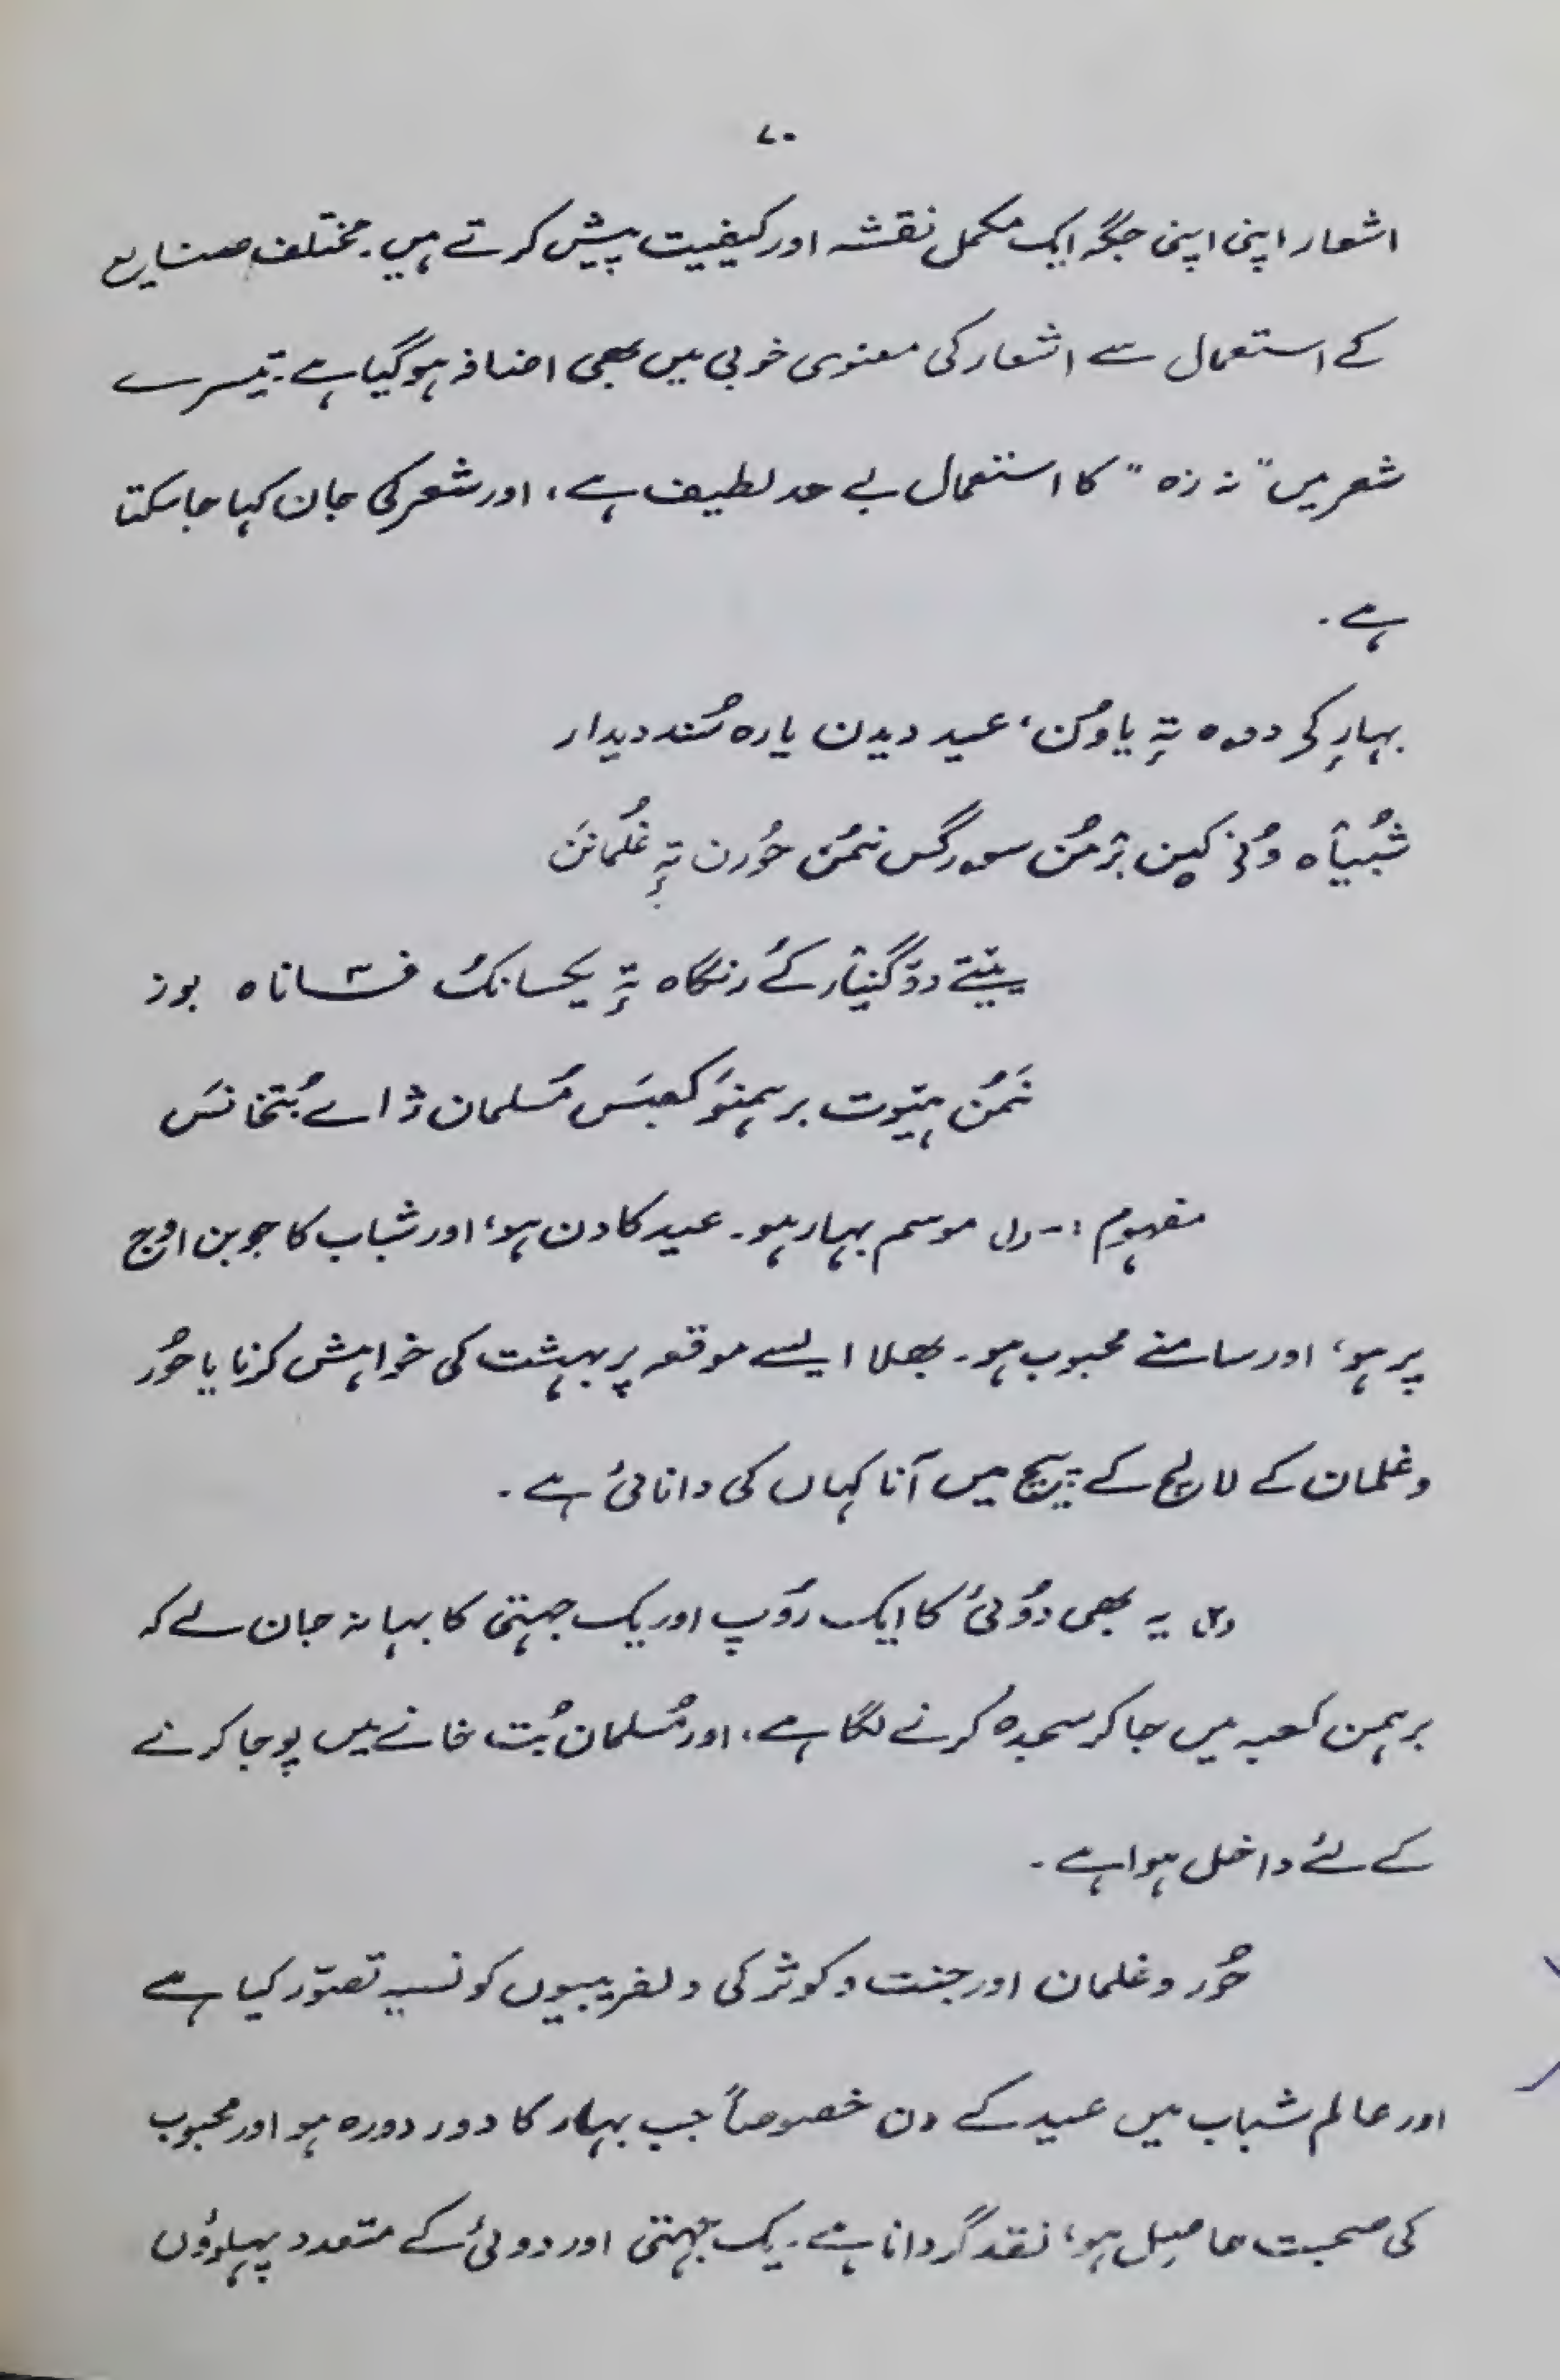 ۷۰
اشعار اپنی اپنی جگہ ایک مکمل نقشہ اور کیفیت پیش کرتے ہیں۔ مختلف صنایع
کے استعمال سے اشعار کی معنوی خوبی میں بھی اضافہ ہو گیا ہے۔ تیسرے
شعر میں " نہ زہ " کا استعمال بے حد لطیف ہے، اور شعر کی جان کہا جا سکتا
ہے۔
بہارِ کی دوہ تہٕ یاوُن، عید دیدن یارہ سُند دیدار
سورگس نمُن حُورن تہٕ غُلمانَن
رنگاہ تہٕ یکسانک فساناہ بوز
نمُن ہیتوت برہمنو کعبس مُسلمان ژاے بُتخانس
مفہوم :- (۱) موسم بہار ہو۔ عید کا دن ہو، اور شباب کا جوبن اوج
پر ہو، اور سامنے محبوب ہو۔ بھلا ایسے موقعہ پر بہشت کی خواہش کرنا یا حُور
و غلمان کے لالچ کے پیچ میں آنا کہاں کی دانائی ہے۔
(۲) یہ بھی دُوئی کا ایک رُوپ اور یک جہتی کا بہانہ جان لے کہ
برہمن کعبہ میں جا کر سجدہ کرنے لگا ہے، اور مُسلمان بُت خانے میں پوجا کرنے
کے لئے داخل ہوا ہے۔
حُور و غلمان اور جنت و کوثر کی دلفریبیوں کو نسیہ تصوّر کیا ہے
اور عالم شباب میں عید کے دن خصوصاً جب بہار کا دور دورہ ہو اور محبوب
کی صحبت حاصل ہو، نقد گردانا ہے۔ یک جہتی اور دوئی کے متعدد پہلوؤں